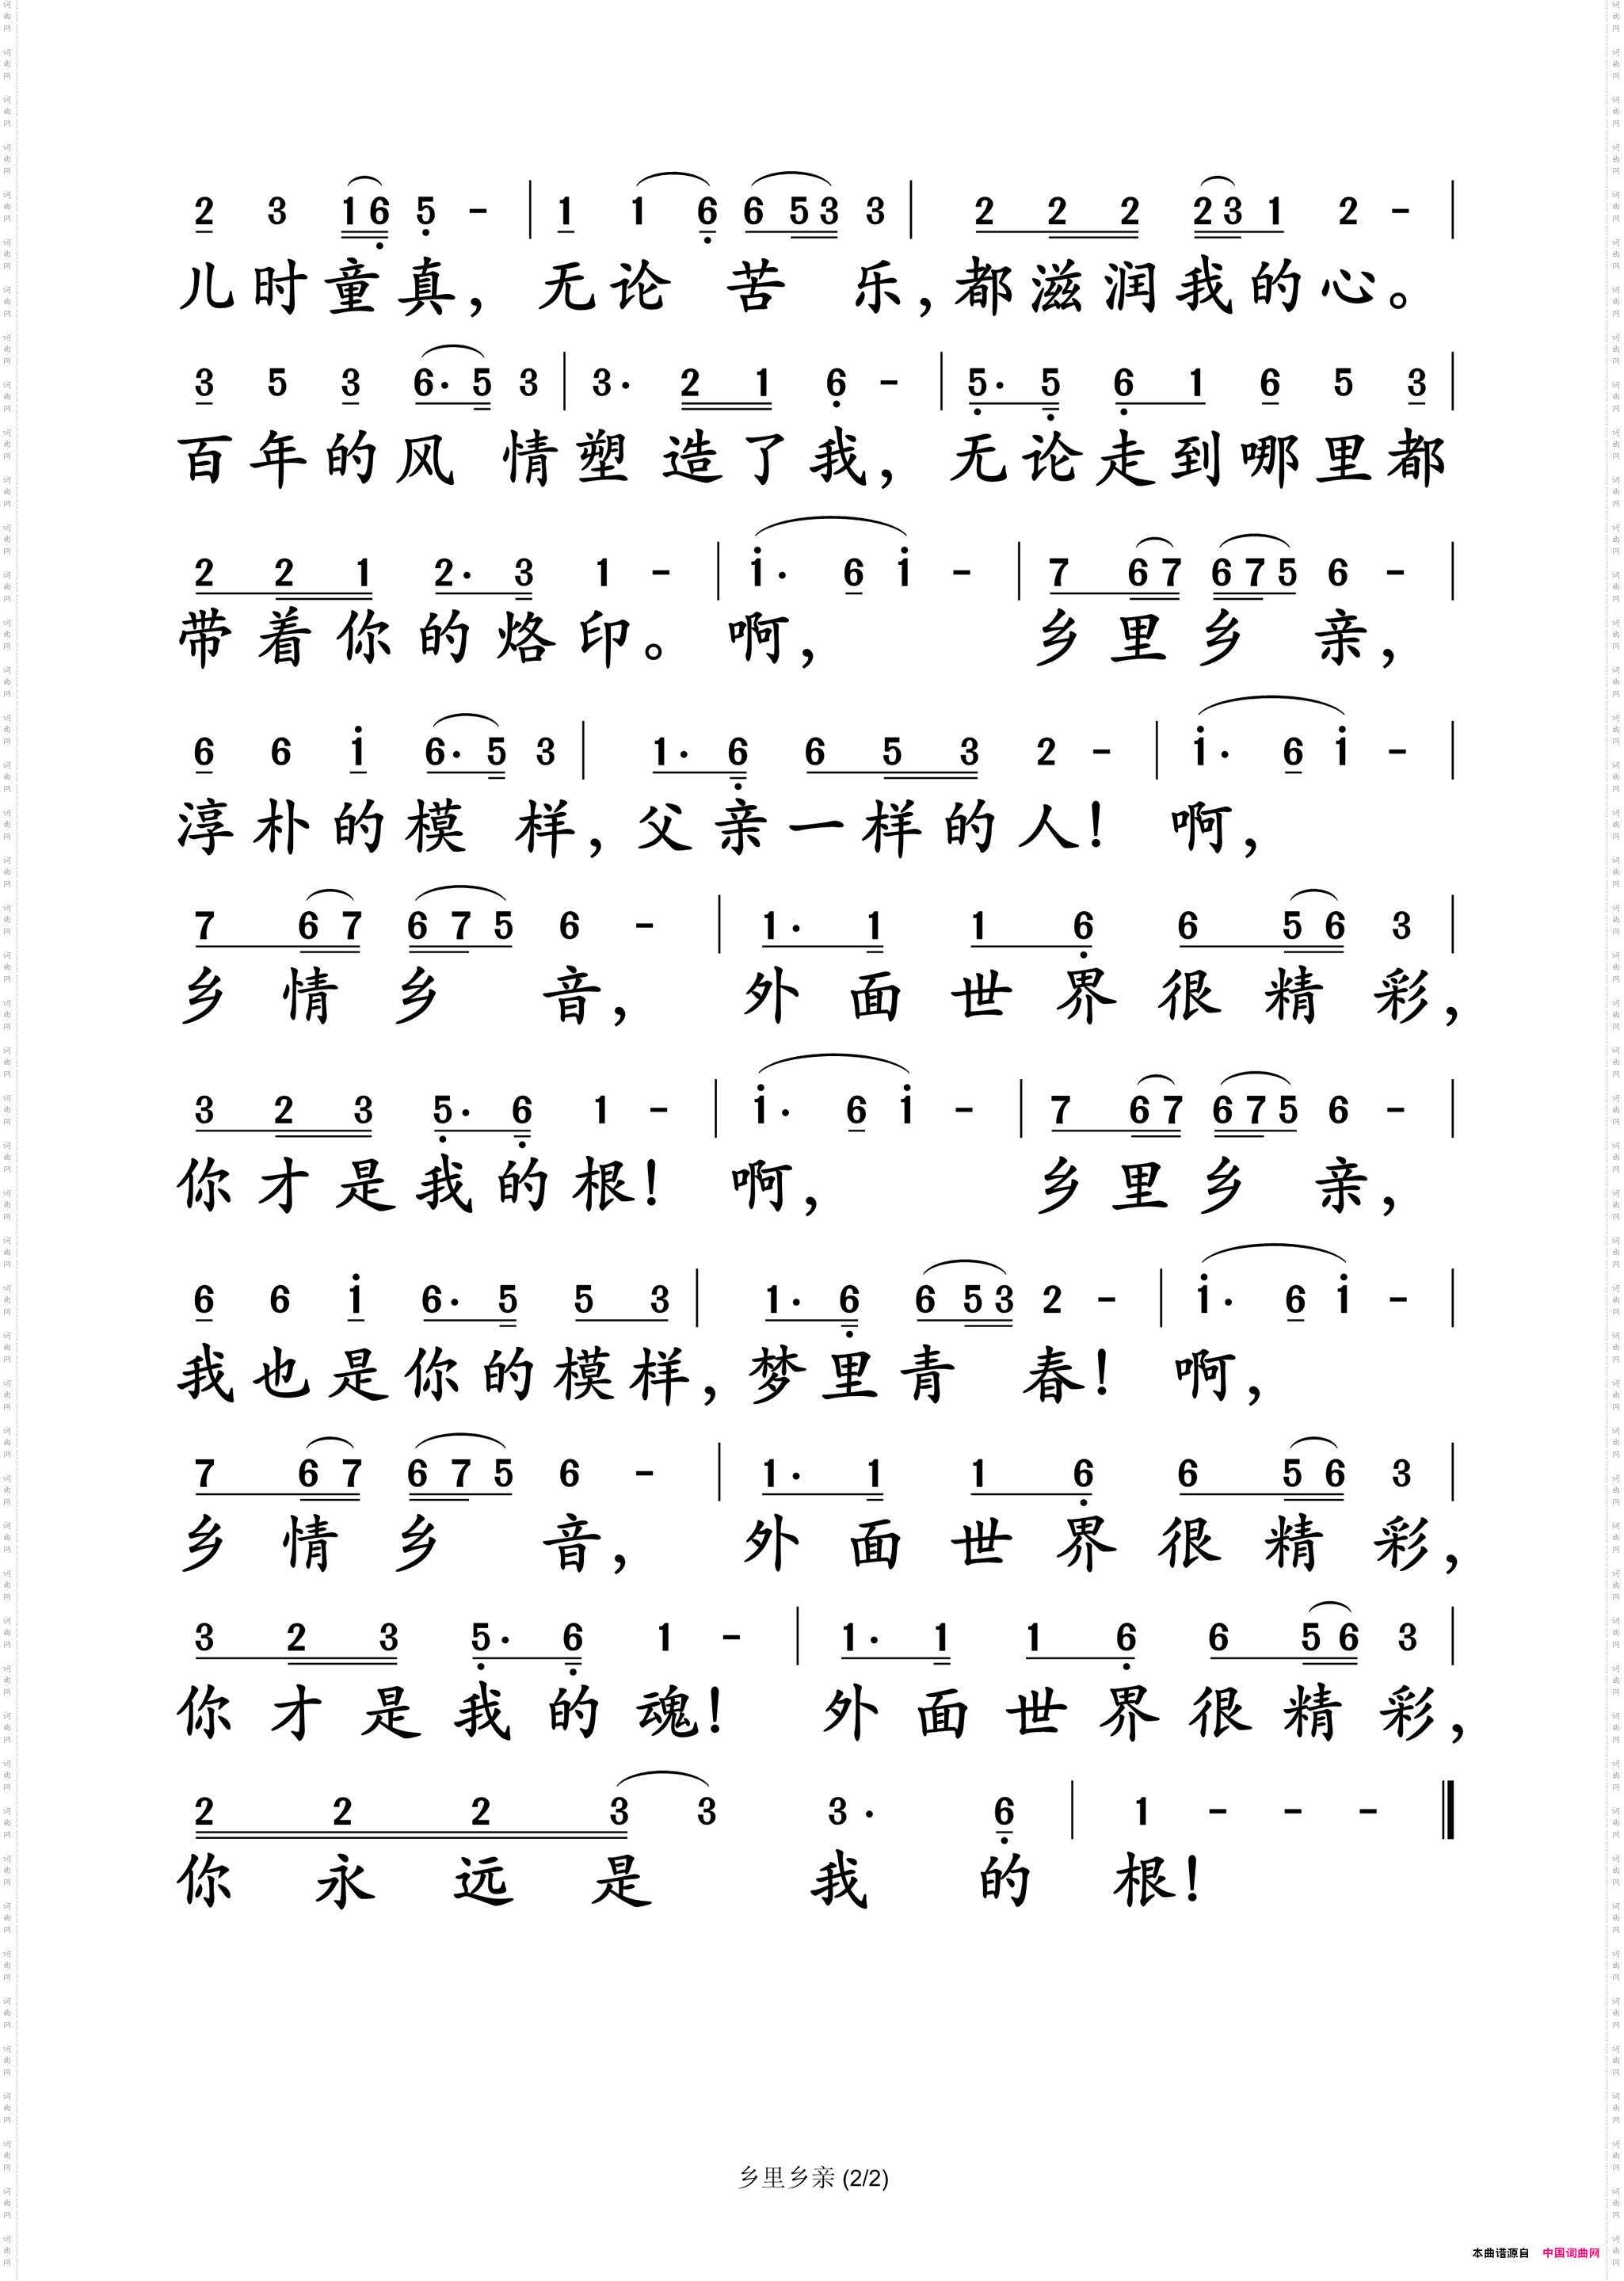 2 3 1 6 5 - | 1 1 6 6 5 3 3 | 2 2 2 2 3 1 2 - |
儿时童真，无论苦乐，都滋润我的心。
3 5 3 6· 5 3 | 3· 2 1 6 - | 5· 5 6 1 6 5 3 |
百年的风情塑造了我，无论走到哪里都
2 2 1 2· 3 1 - | i· 6 i - | 7 6 7 6 7 5 6 - |
带着你的烙印。啊，乡里乡亲，
6 6 i 6· 5 3 | 1· 6 6 5 3 2 - | i· 6 i - |
淳朴的模样，父亲一样的人！啊，
7 6 7 6 7 5 6 - | 1· 1 1 6 6 5 6 3 |
乡情乡音，外面世界很精彩，
3 2 3 5· 6 1 - | i· 6 i - | 7 6 7 6 7 5 6 - |
你才是我的根！啊，乡里乡亲，
6 6 i 6· 5 5 3 | 1· 6 6 5 3 2 - | i· 6 i - |
我也是你的模样，梦里青春！啊，
7 6 7 6 7 5 6 - | 1· 1 1 6 6 5 6 3 |
乡情乡音，外面世界很精彩，
3 2 3 5· 6 1 - | 1· 1 1 6 6 5 6 3 |
你才是我的魂！外面世界很精彩，
2 2 2 3 3 3· 6 | 1 - - - ‖
你永远是我的根！
乡里乡亲 (2/2)
本曲谱源自 中国词曲网